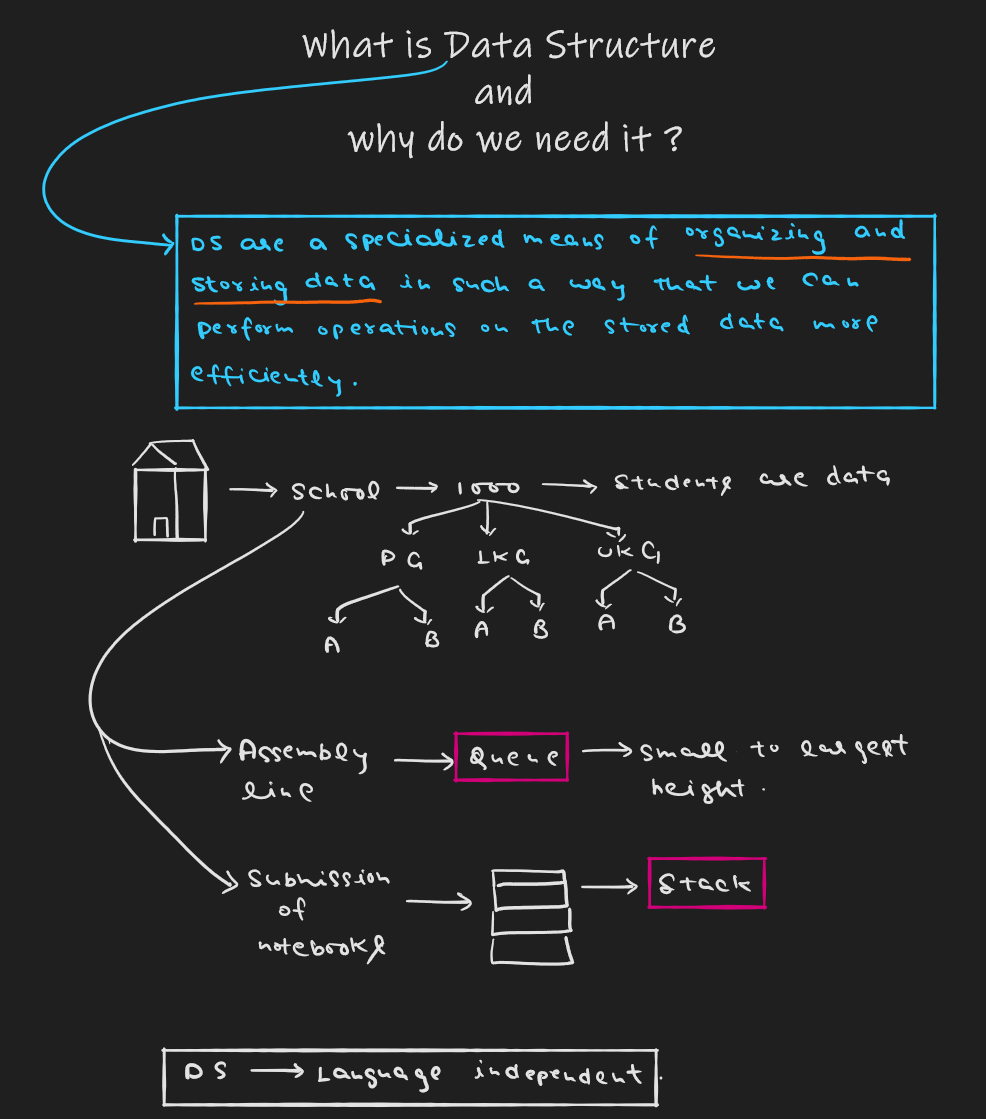 What is Data Structure
and
why do we need it ?
DS are a specialized means of organizing and
storing data in such a way that we can
perform operations on the stored data more
efficiently.
School 1000 Students are data
PG LKG UKG
A B A B A B
Assembly Queue small to largest
line height.
Submission Stack
of
notebooks
DS Language independent.